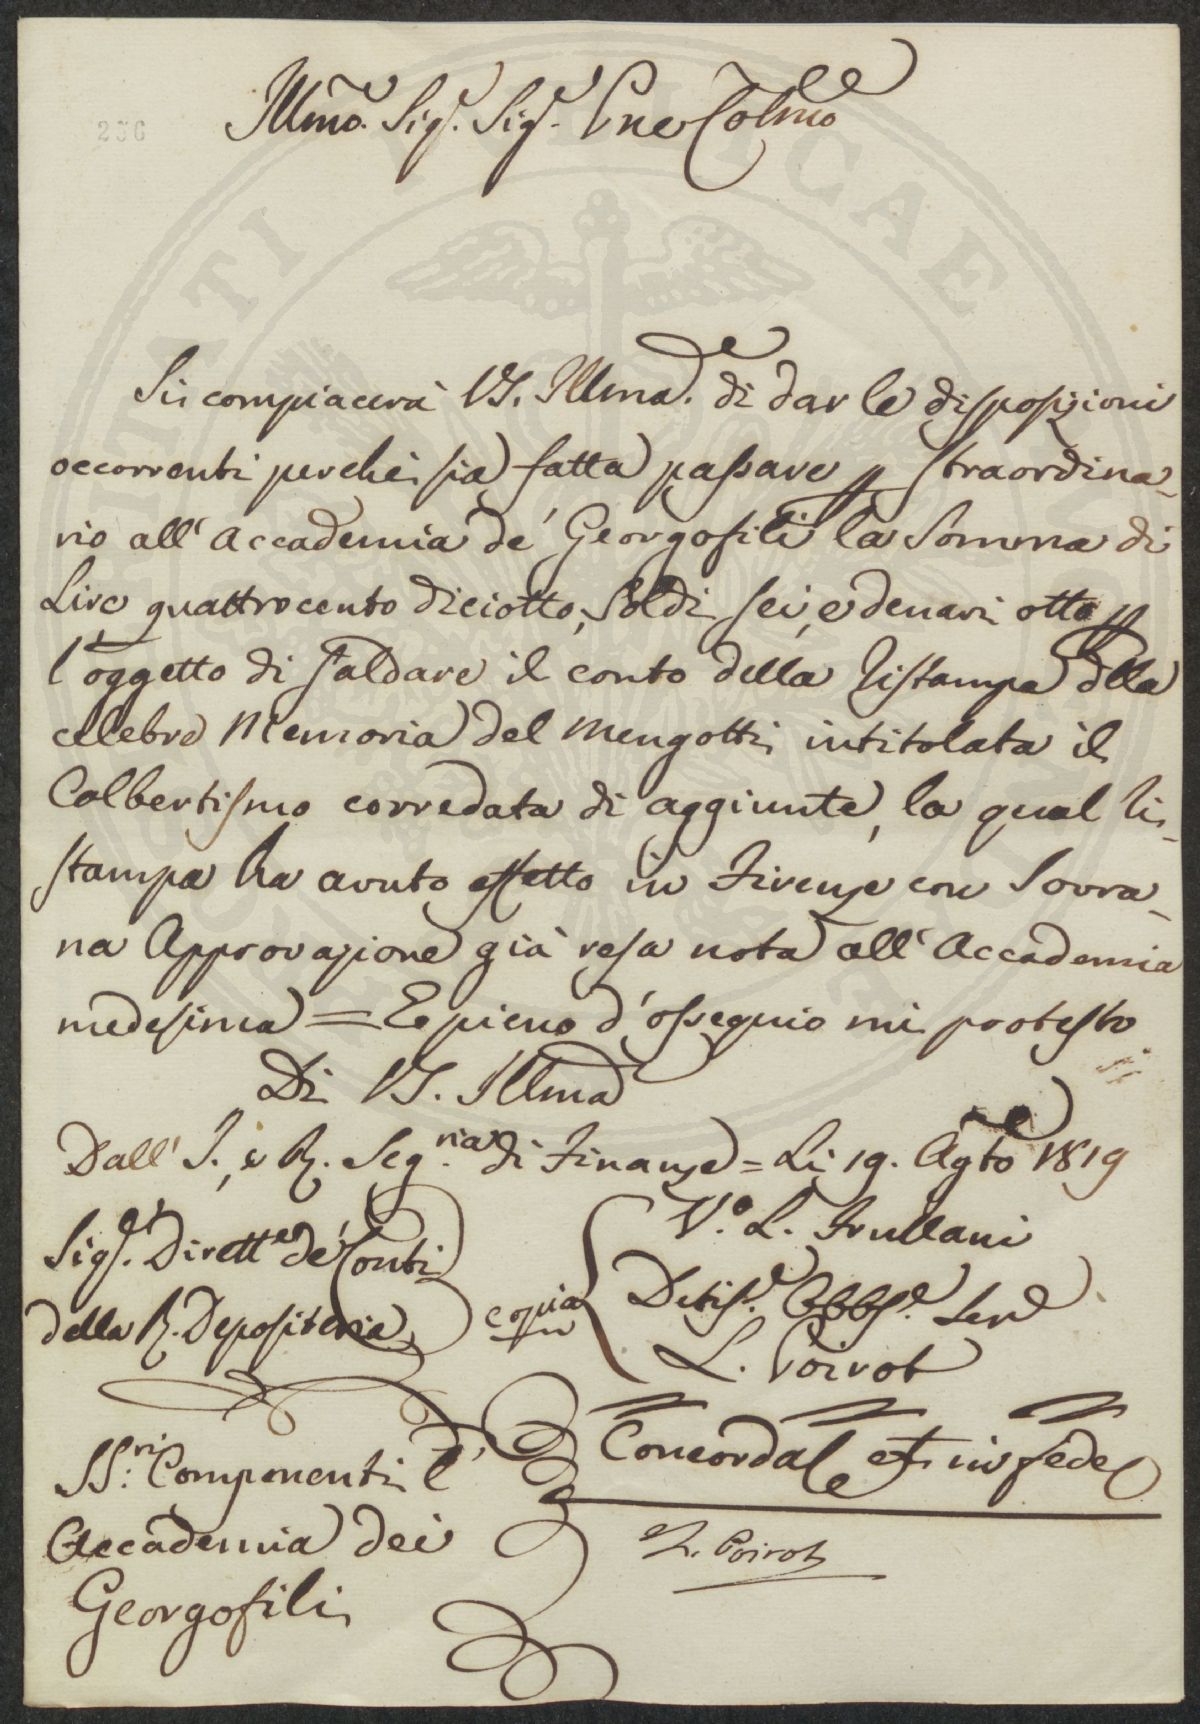 236
Illmo. Sig.e Sig.e Pne Colmo
Si compiacerà VS. Illma. di dar le disposizioni
occorrenti perchè sia fatta passare p straordina-
rio all' Accademia de' Georgofili la Somma di
Lire quattrocento diciotto, Soldi sei, e denari otto p
l'oggetto di saldare il conto della ristampa della
celebre Memoria del Mengotti intitolata il
Colbertismo corredata di aggiunte, la qual ri-
stampa ha avuto effetto in Firenze con Sovra-
na Approvazione già resa nota all' Accademia
medesima = E pieno d'ossequio mi protesto
Di VS. Illma
Dall' I. e R. Seg.ria di Finanze = Li 19. Agto 1819
Sig.e Dirett.e de' Conti
della R. Depositeria
copia
V.o L. Frullani
Devtis.o Obbg.o Serve
L. Poirot
SS.ri Componenti l'
Accademia dei
Georgofili
Concorda et in fede
L. Poirot